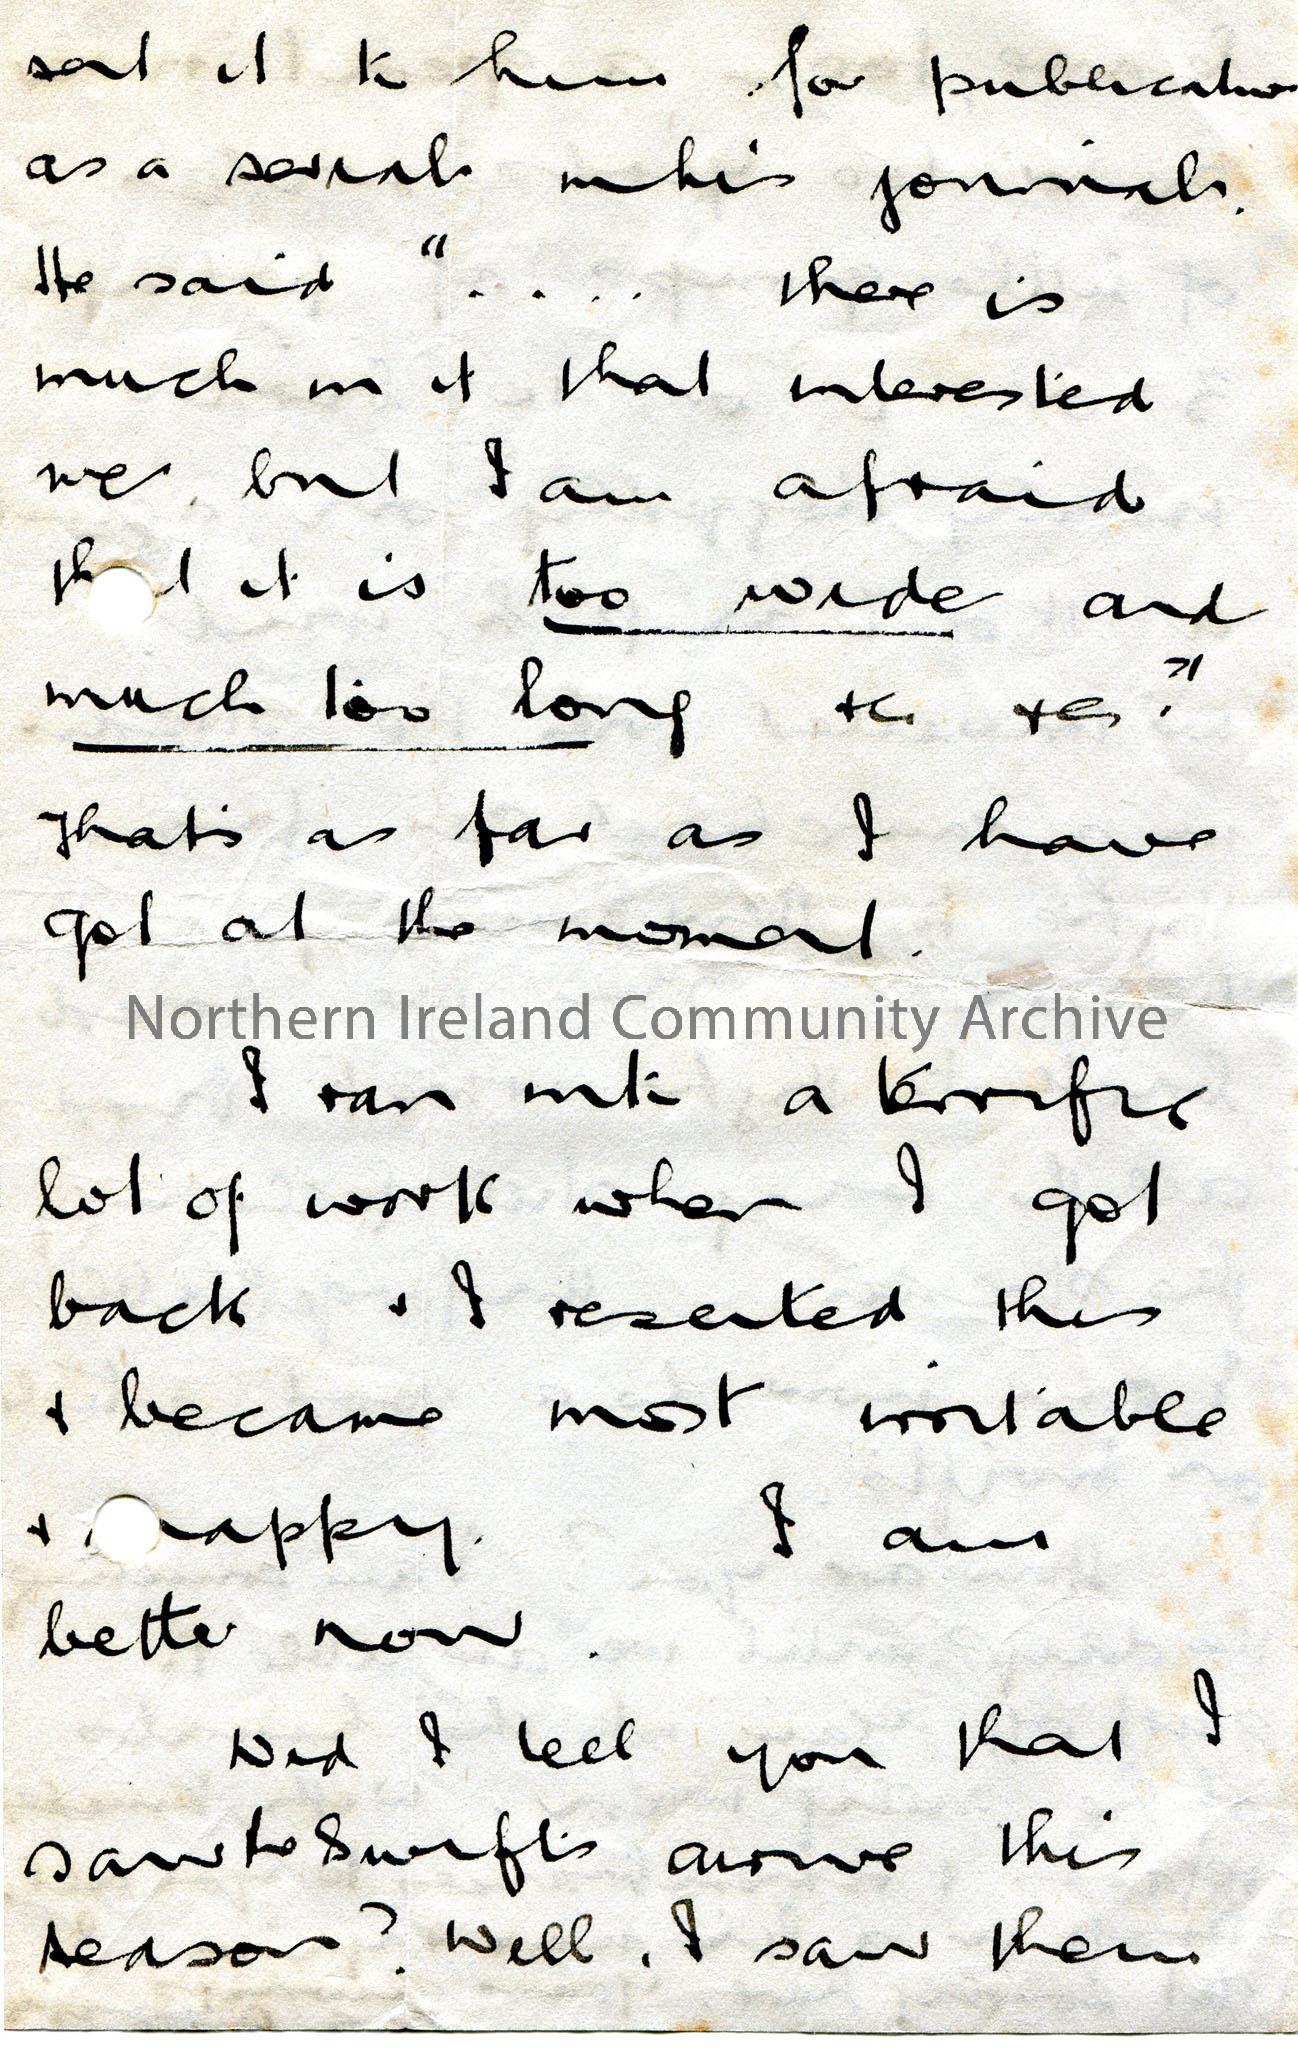 sent it to him for publication
as a serial in his journal.
He said "..... there is
much in it that interested
me, but I am afraid
that it is too wide and
much too long etc etc."
That's as far as I have
got at the moment.
Northern Ireland Community Archive
I ran into a terrific
lot of work when I got
back & I resented this
& became most irritable
& snappy. I am
better now.
Did I tell you that I
saw the Swifts arrive this
season? Well, I saw them